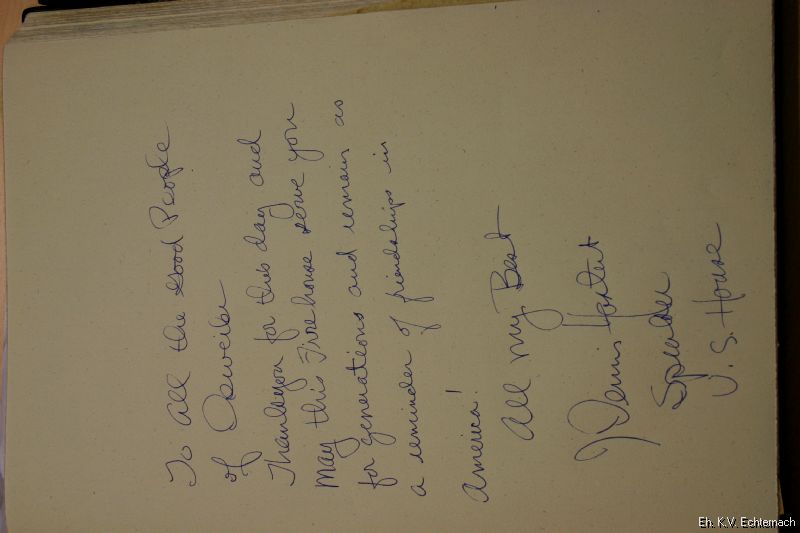 To All the Good People
of Osweiler
Thankyou for this day and
May this Firehouse serve you
for generations and remain as
a reminder of friendships in
America!
All my Best
Dennis Hastert
Speaker
U.S. House
Eh. K.V. Echternach